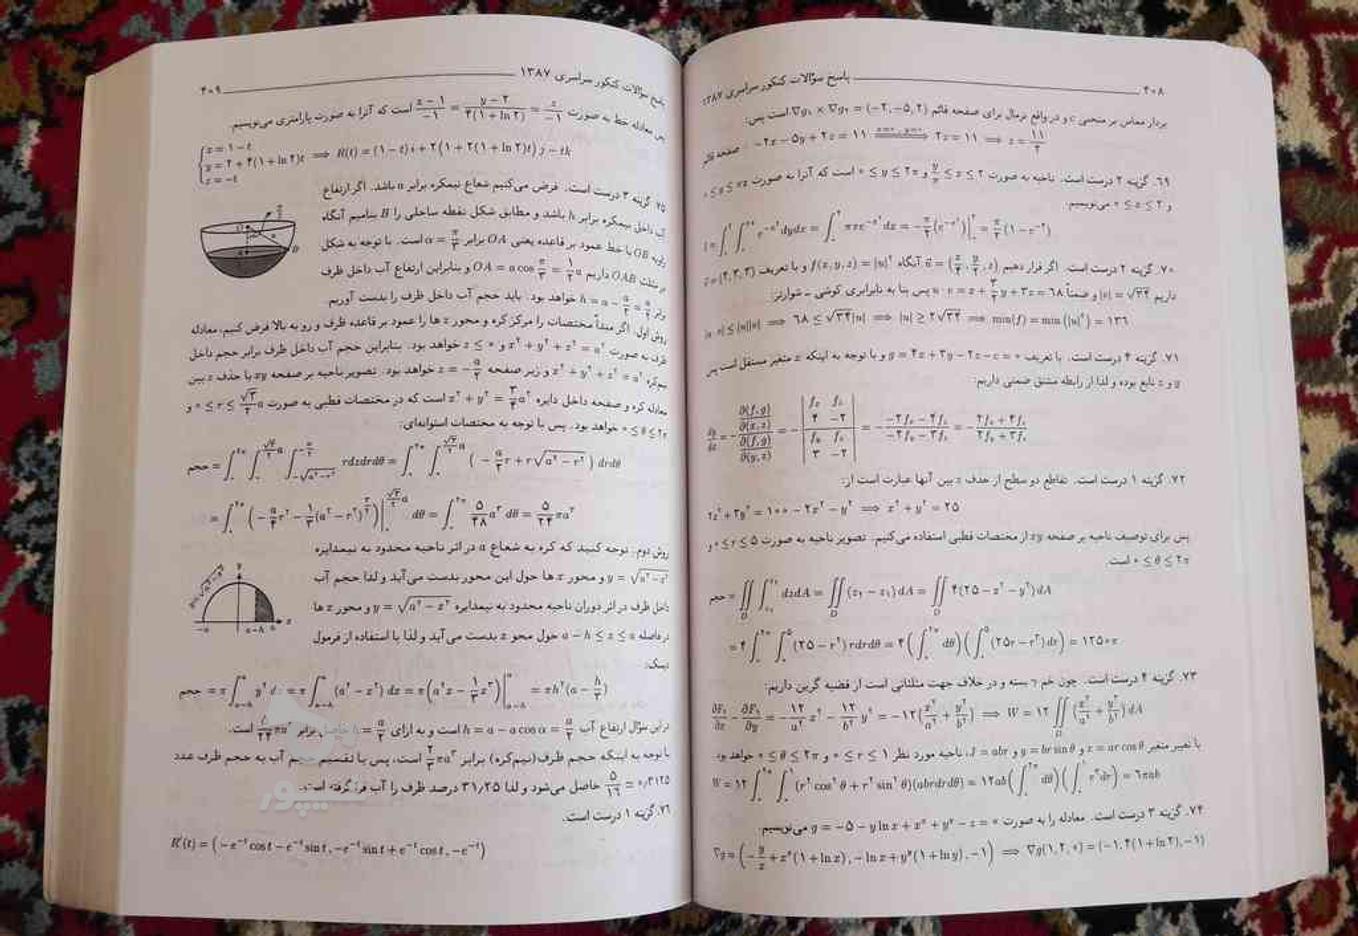 پاسخ سؤالات کنکور سراسری ۱۳۸۷ ۴۰۸
بردار مماس بر منحنی c و در واقع نرمال برای صفحه قائم ∇g₁ × ∇g₂ = (−۲, −۵, ۲) است پس:
صفحه قائم −۲x − ۵y + ۲z = ۱۱ ⟹ ۲z = ۱۱ ⟹ z = ۱۱/۲
۶۹. گزینه ۲ درست است. ناحیه به صورت
و ۰ ≤ z ≤ ۲ می‌نویسیم.
۷۰. گزینه ۲ درست است. اگر قرار دهیم u = (x/۲, y/۲, z) آنگاه f(x, y, z) = |u|² و با تعریف
داریم |v| = √۳۴ و ضمناً پس بنا به نابرابری کوشی - شوارتز:
|u·v| ≤ |u||v| ⟹ ۶۸ ≤ √۳۴|u| ⟹ |u| ≥ ۲√۳۴ ⟹ min(f) = min(|u|²) = ۱۳۶
۷۱. گزینه ۴ درست است. با تعریف g = ۴x + ۳y − ۲z − c = ۰ و با توجه به اینکه x متغیر مستقل است پس
y و z تابع بوده و لذا از رابطه مشتق ضمنی داریم:
۷۲. گزینه ۱ درست است. تقاطع دو سطح از حذف z بین آنها عبارت است از:
۲x² + ۳y² = ۱۰۰ − ۲x² − y² ⟹ x² + y² = ۲۵
پس برای توصیف ناحیه بر صفحه xy از مختصات قطبی استفاده می‌کنیم. تصویر ناحیه به صورت ۰ ≤ r ≤ ۵ و
۰ ≤ θ ≤ ۲π است.
حجم = ∬_D ∫ dzdA = ∬_D (z₂ − z₁) dA = ∬_D ۴(۲۵ − x² − y²) dA
= ۴ ∫₀^۲π ∫₀^۵ (۲۵ − r²) rdrdθ = ۴(∫₀^۲π dθ)(∫₀^۵ (۲۵r − r³) dr) = ۱۲۵۰π
۷۳. گزینه ۲ درست است. چون خم γ بسته و در خلاف جهت مثلثاتی است از قضیه گرین داریم:
∂F₂/∂x − ∂F₁/∂y = −۱۲/a² x² − ۱۲/b² y² = −۱۲(x²/a² + y²/b²) ⟹ W = ۱۲ ∬_D (x²/a² + y²/b²) dA
با تغییر متغیر x = ar cos θ و y = br sin θ و J = abr، ناحیه مورد نظر ۰ ≤ r ≤ ۱ و ۰ ≤ θ ≤ ۲π خواهد بود.
W = ۱۲ ∫₀^۲π ∫₀^۱ (r² cos² θ + r² sin² θ)(abrdrdθ) = ۱۲ab(∫₀^۲π dθ)(∫₀^۱ r³dr) = ۶πab
۷۴. گزینه ۳ درست است. معادله را به صورت g = −۵ − y ln x + xˣ + yʸ − z = ۰ می‌نویسیم.
∇g = (−y/x + xˣ(۱ + ln x), −ln x + yʸ(۱ + ln y), −۱) ⟹ ∇g(۱, ۲, ۰) = (−۱, ۴(۱ + ln ۲), −۱)
پاسخ سؤالات کنکور سراسری ۱۳۸۷ ۴۰۹
پس معادله خط به صورت (x − ۱)/−۱ = (y − ۲)/۴(۱ + ln ۲) = z/−۱ است که آنرا به صورت پارامتری می‌نویسیم
x = ۱ − t
y = ۲ + ۴(۱ + ln ۲)t ⟹ R(t) = (۱ − t)i + ۲(۱ + ۲(۱ + ln ۲)t)j − tk
z = −t
۷۵. گزینه ۳ درست است. فرض می‌کنیم شعاع نیمکره برابر a باشد. اگر ارتفاع
آب داخل نیمکره برابر h باشد و مطابق شکل نقطه ساحلی را B بنامیم آنگاه
زاویه OB با خط عمود بر قاعده یعنی OA برابر α = π/۳ است. با توجه به شکل
در مثلث OAB داریم OA = a cos π/۳ = ۱/۲ a و بنابراین ارتفاع آب داخل ظرف
برابر h = a − a/۲ = a/۲ خواهد بود. باید حجم آب داخل ظرف را بدست آوریم.
روش اول. اگر مبدأ مختصات را مرکز کره و محور z ها را عمود بر قاعده ظرف و رو به بالا فرض کنیم، معادله
ظرف به صورت x² + y² + z² = a² و z ≤ ۰ خواهد بود. بنابراین حجم آب داخل ظرف برابر حجم داخل
نیمکره x² + y² + z² = a² و زیر صفحه z = −a/۲ خواهد بود. تصویر ناحیه بر صفحه xy با حذف z بین
معادله کره و صفحه داخل دایره x² + y² = ۳/۴ a² است که در مختصات قطبی به صورت ۰ ≤ r ≤ √۳/۲ a و
۰ ≤ θ ≤ ۲π خواهد بود. پس با توجه به مختصات استوانه‌ای:
حجم = ∫₀^۲π ∫₀^(√۳/۲ a) ∫_(−√(a²−r²))^(−a/۲) rdzdrdθ = ∫₀^۲π ∫₀^(√۳/۲ a) (−a/۲ r + r√(a² − r²)) drdθ
= ∫₀^۲π (−a/۴ r² − ۱/۳ (a² − r²)^(۳/۲))|₀^(√۳/۲ a) dθ = ∫₀^۲π ۵/۴۸ a³ dθ = ۵/۲۴ πa³
روش دوم. توجه کنید که کره به شعاع a در اثر ناحیه محدود به نیمدایره
y = √(a² − x²) و محور x ها حول این محور بدست می‌آید و لذا حجم آب
داخل ظرف در اثر دوران ناحیه محدود به نیمدایره y = √(a² − x²) و محور x ها
در فاصله a − h ≤ x ≤ a حول محور x بدست می‌آید و لذا با استفاده از فرمول
دیسک:
حجم = π ∫_(a−h)^a y² dx = π ∫_(a−h)^a (a² − x²) dx = π(a²x − ۱/۳ x³)|_(a−h)^a = πh²(a − h/۳)
در این سؤال ارتفاع آب h = a − a cos α = a/۲ است و به ازای h = a/۲ حاصل برابر ۵/۲۴ πa³ است.
با توجه به اینکه حجم ظرف (نیم‌کره) برابر ۲/۳ πa³ است، پس با تقسیم حجم آب به حجم ظرف عدد
۵/۱۶ = ۰/۳۱۲۵ حاصل می‌شود و لذا ۳۱٫۲۵ درصد ظرف را آب فرا گرفته است.
۷۶. گزینه ۱ درست است.
R′(t) = (−e⁻ᵗ cos t − e⁻ᵗ sin t, −e⁻ᵗ sin t + e⁻ᵗ cos t, −e⁻ᵗ)
شیپور